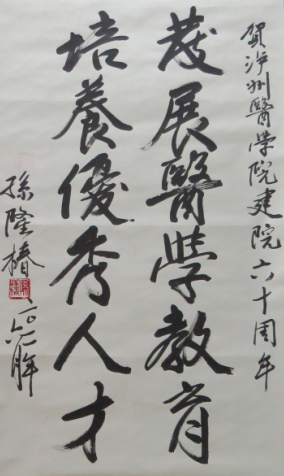 贺泸州醫学院建院六十周年
發展醫學教育
培養優秀人才
孫隆椿